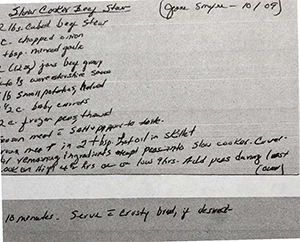 Slow Cooker Beef Stew (Jane Smyre - 10/09)
2 lbs. Cubed beef Stew
c. chopped onion
tbsp. minced garlic
jars beef gravy
worcestershire sauce
lb small potatoes, halved
1/2 c. baby carrots
2 c frozen peas, thawed
meat = salt & pepper to taste.
meat in 2 tbsp. hot oil in skillet
remaining ingredients except peas into slow cooker. Cover.
Cook on High 4 hrs or on low 9 hrs. Add peas during last
(over)
10 minutes. Serve = crusty bread, if desired.